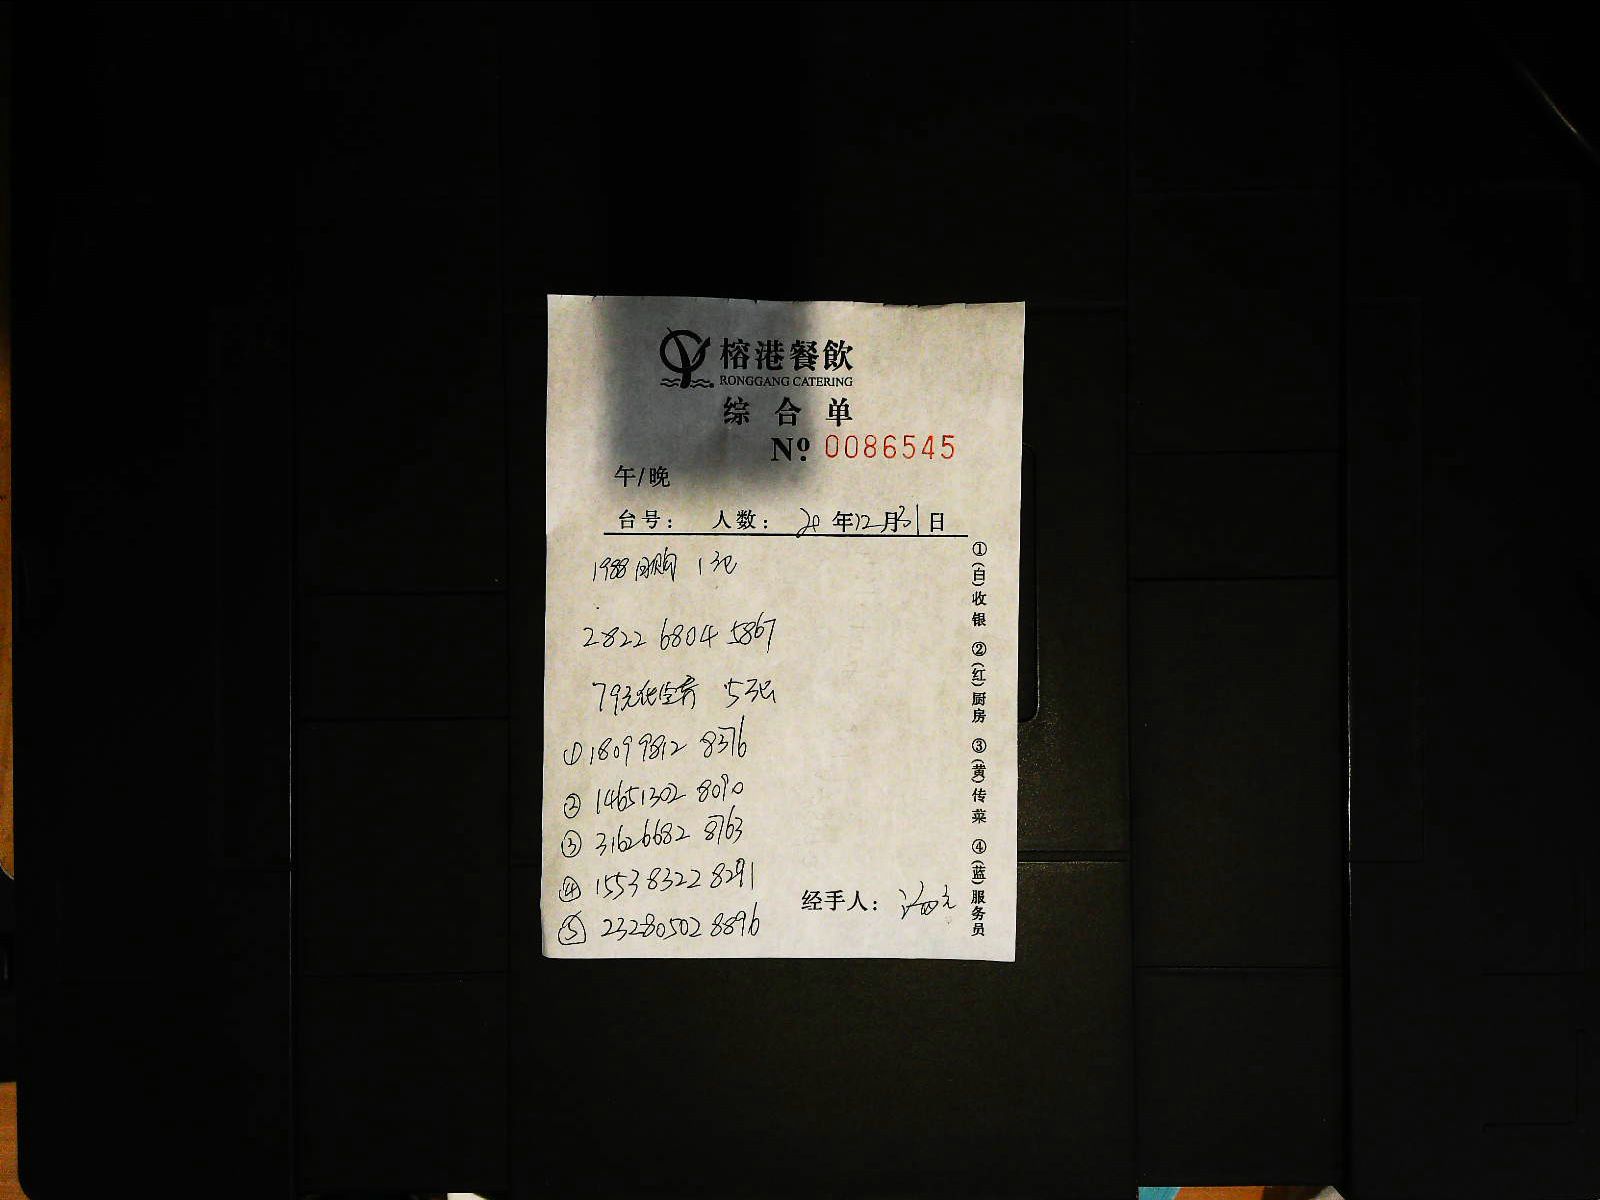 榕港餐飲
RONGGANG CATERING
综合单
Nº 0086545
午/晚
台号： 人数： 20年12月31日
1988团购 1张
2822 6804 5867
79元代金券 5张
①1809 9812 8376
②1465 1302 8090
③3162 6682 8763
④1553 8322 8291
⑤2328 0502 8896
经手人：
①(白)收银 ②(红)厨房 ③(黄)传菜 ④(蓝)服务员